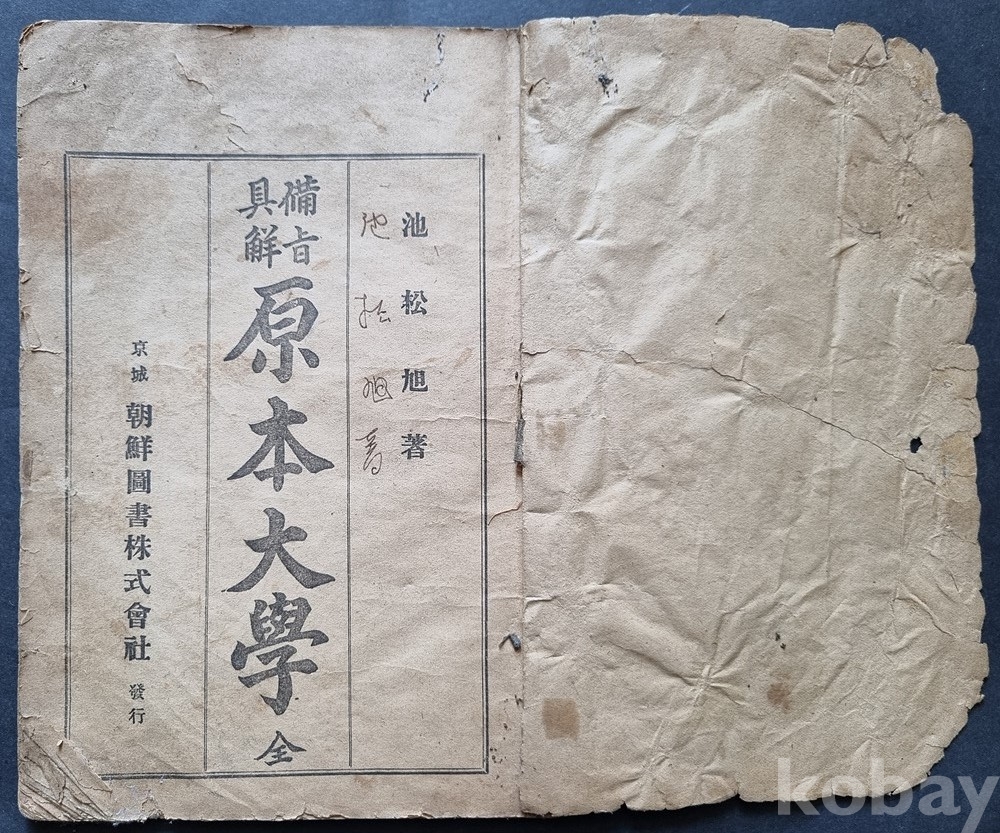 池松旭著
池松旭著
備旨
具觧
原本大學 全
京城 朝鮮圖書株式會社 發行
kobay